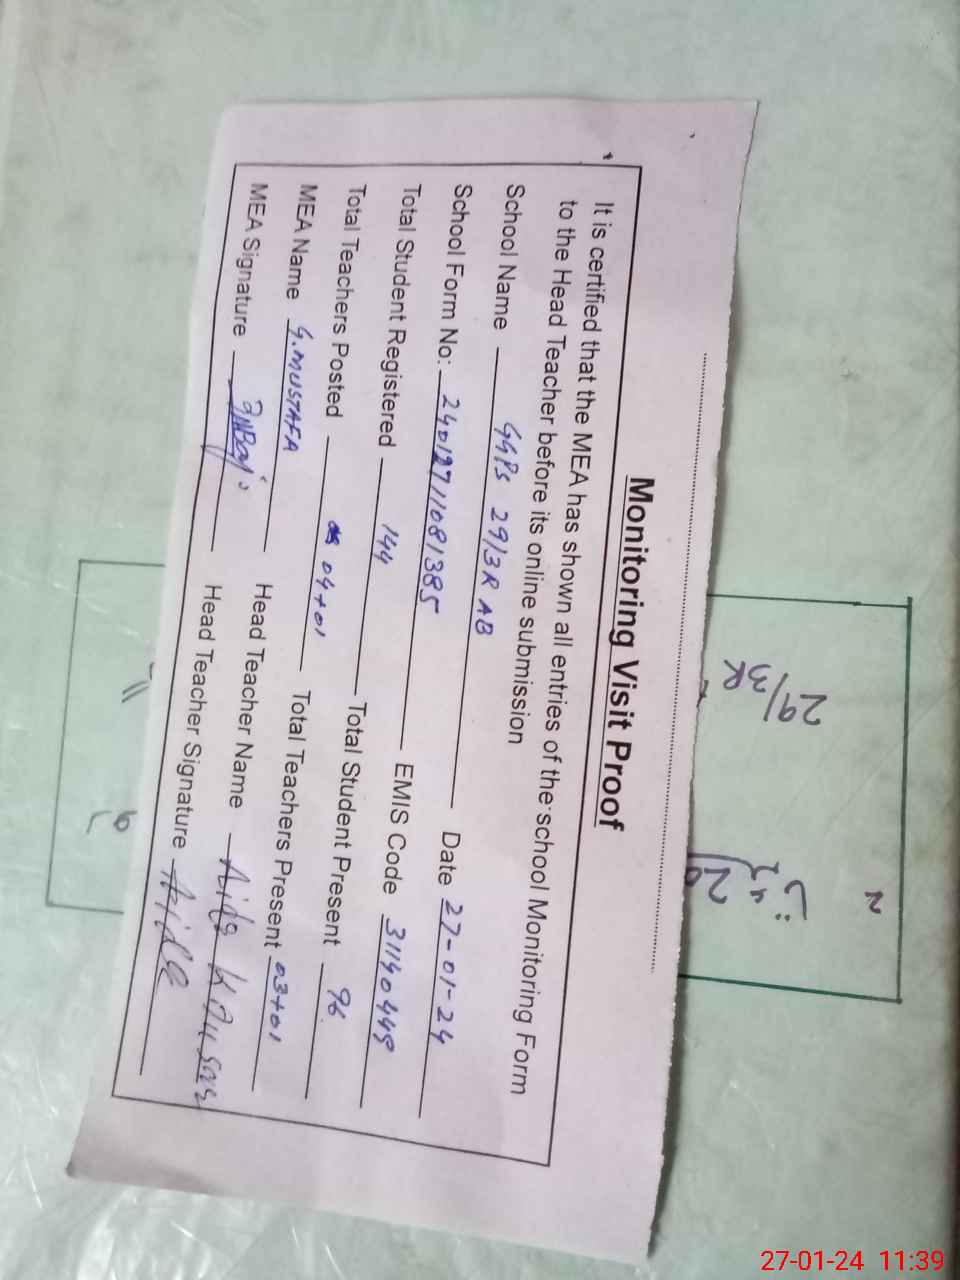 Monitoring Visit Proof
It is certified that the MEA has shown all entries of the school Monitoring Form
to the Head Teacher before its online submission
School Name GGPS 29/3R AB
School Form No: 24012711081385 Date 27-01-24
Total Student Registered 144 EMIS Code 31140449
Total Teachers Posted 04+01 Total Student Present 96
MEA Name G.MUSTAFA Total Teachers Present 03+01
MEA Signature Head Teacher Name Aida Kausar
Head Teacher Signature Aida
29/3R
2
20
27-01-24 11:39